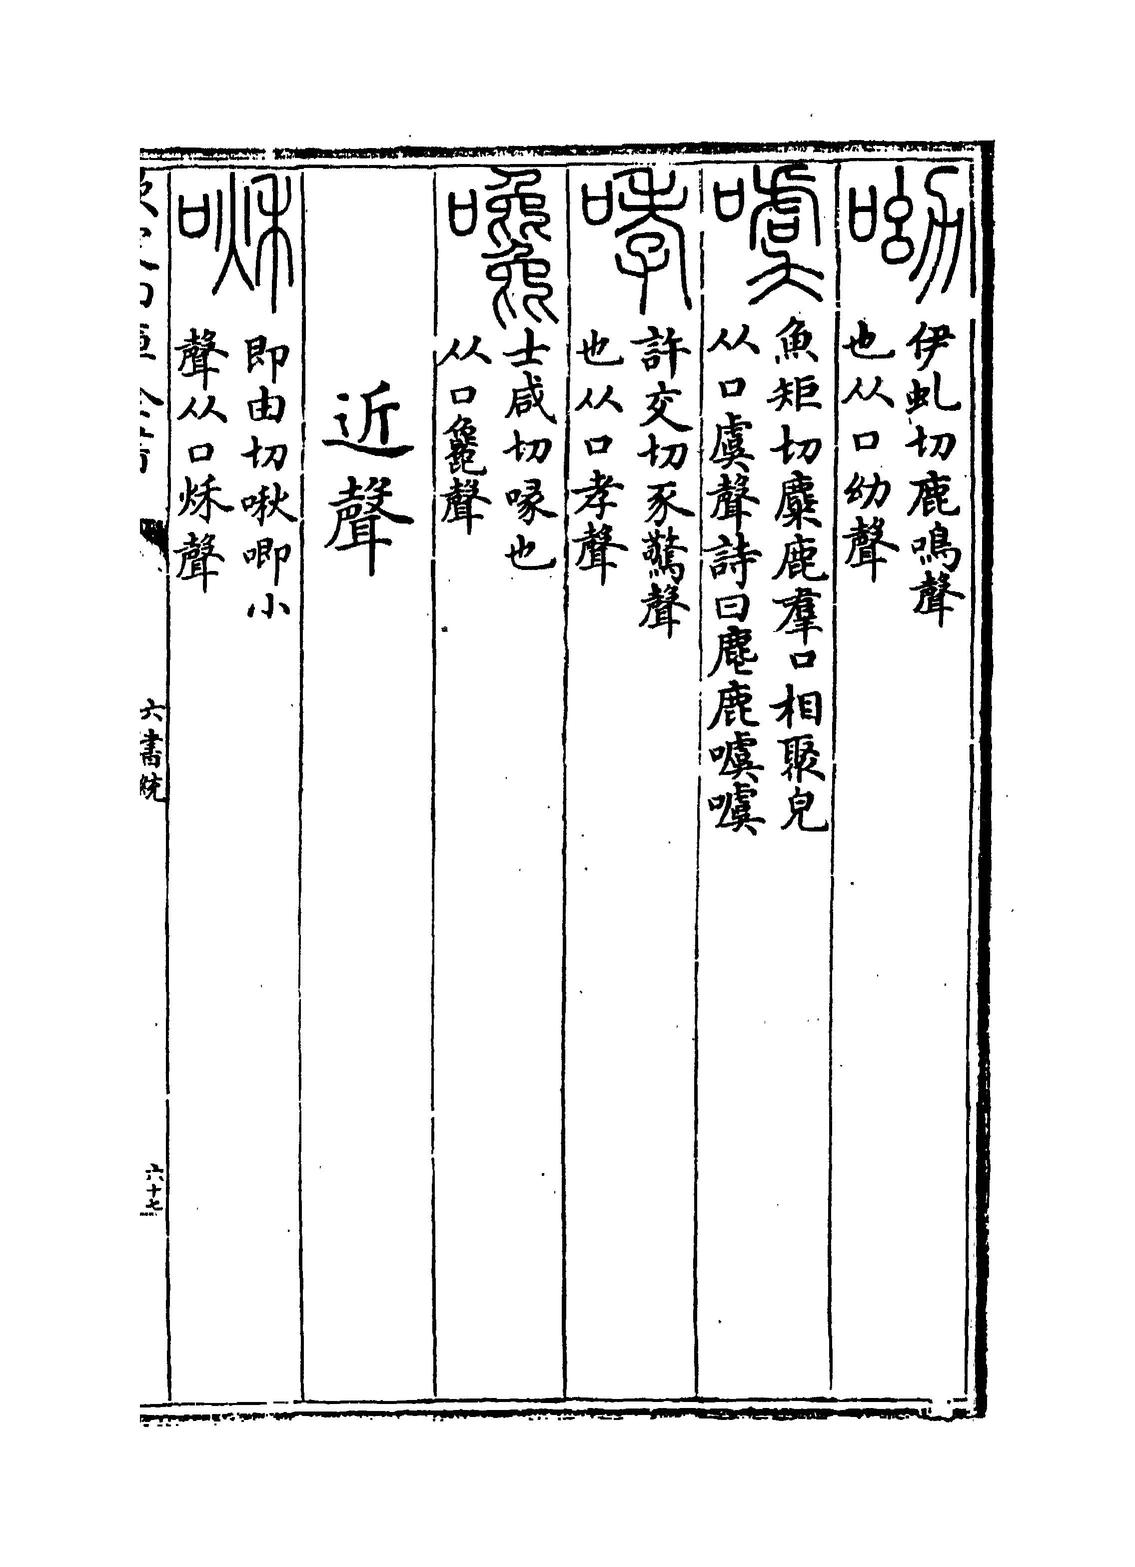 呦
伊虬切鹿鳴聲
也从口幼聲
噳
魚矩切麋鹿羣口相聚皃
从口虞聲詩曰麀鹿噳噳
哮
許交切豕驚聲
也从口孝聲
嚵
士咸切喙也
从口毚聲
近聲
啾
即由切啾唧小
聲从口秌聲
六書統
六十七